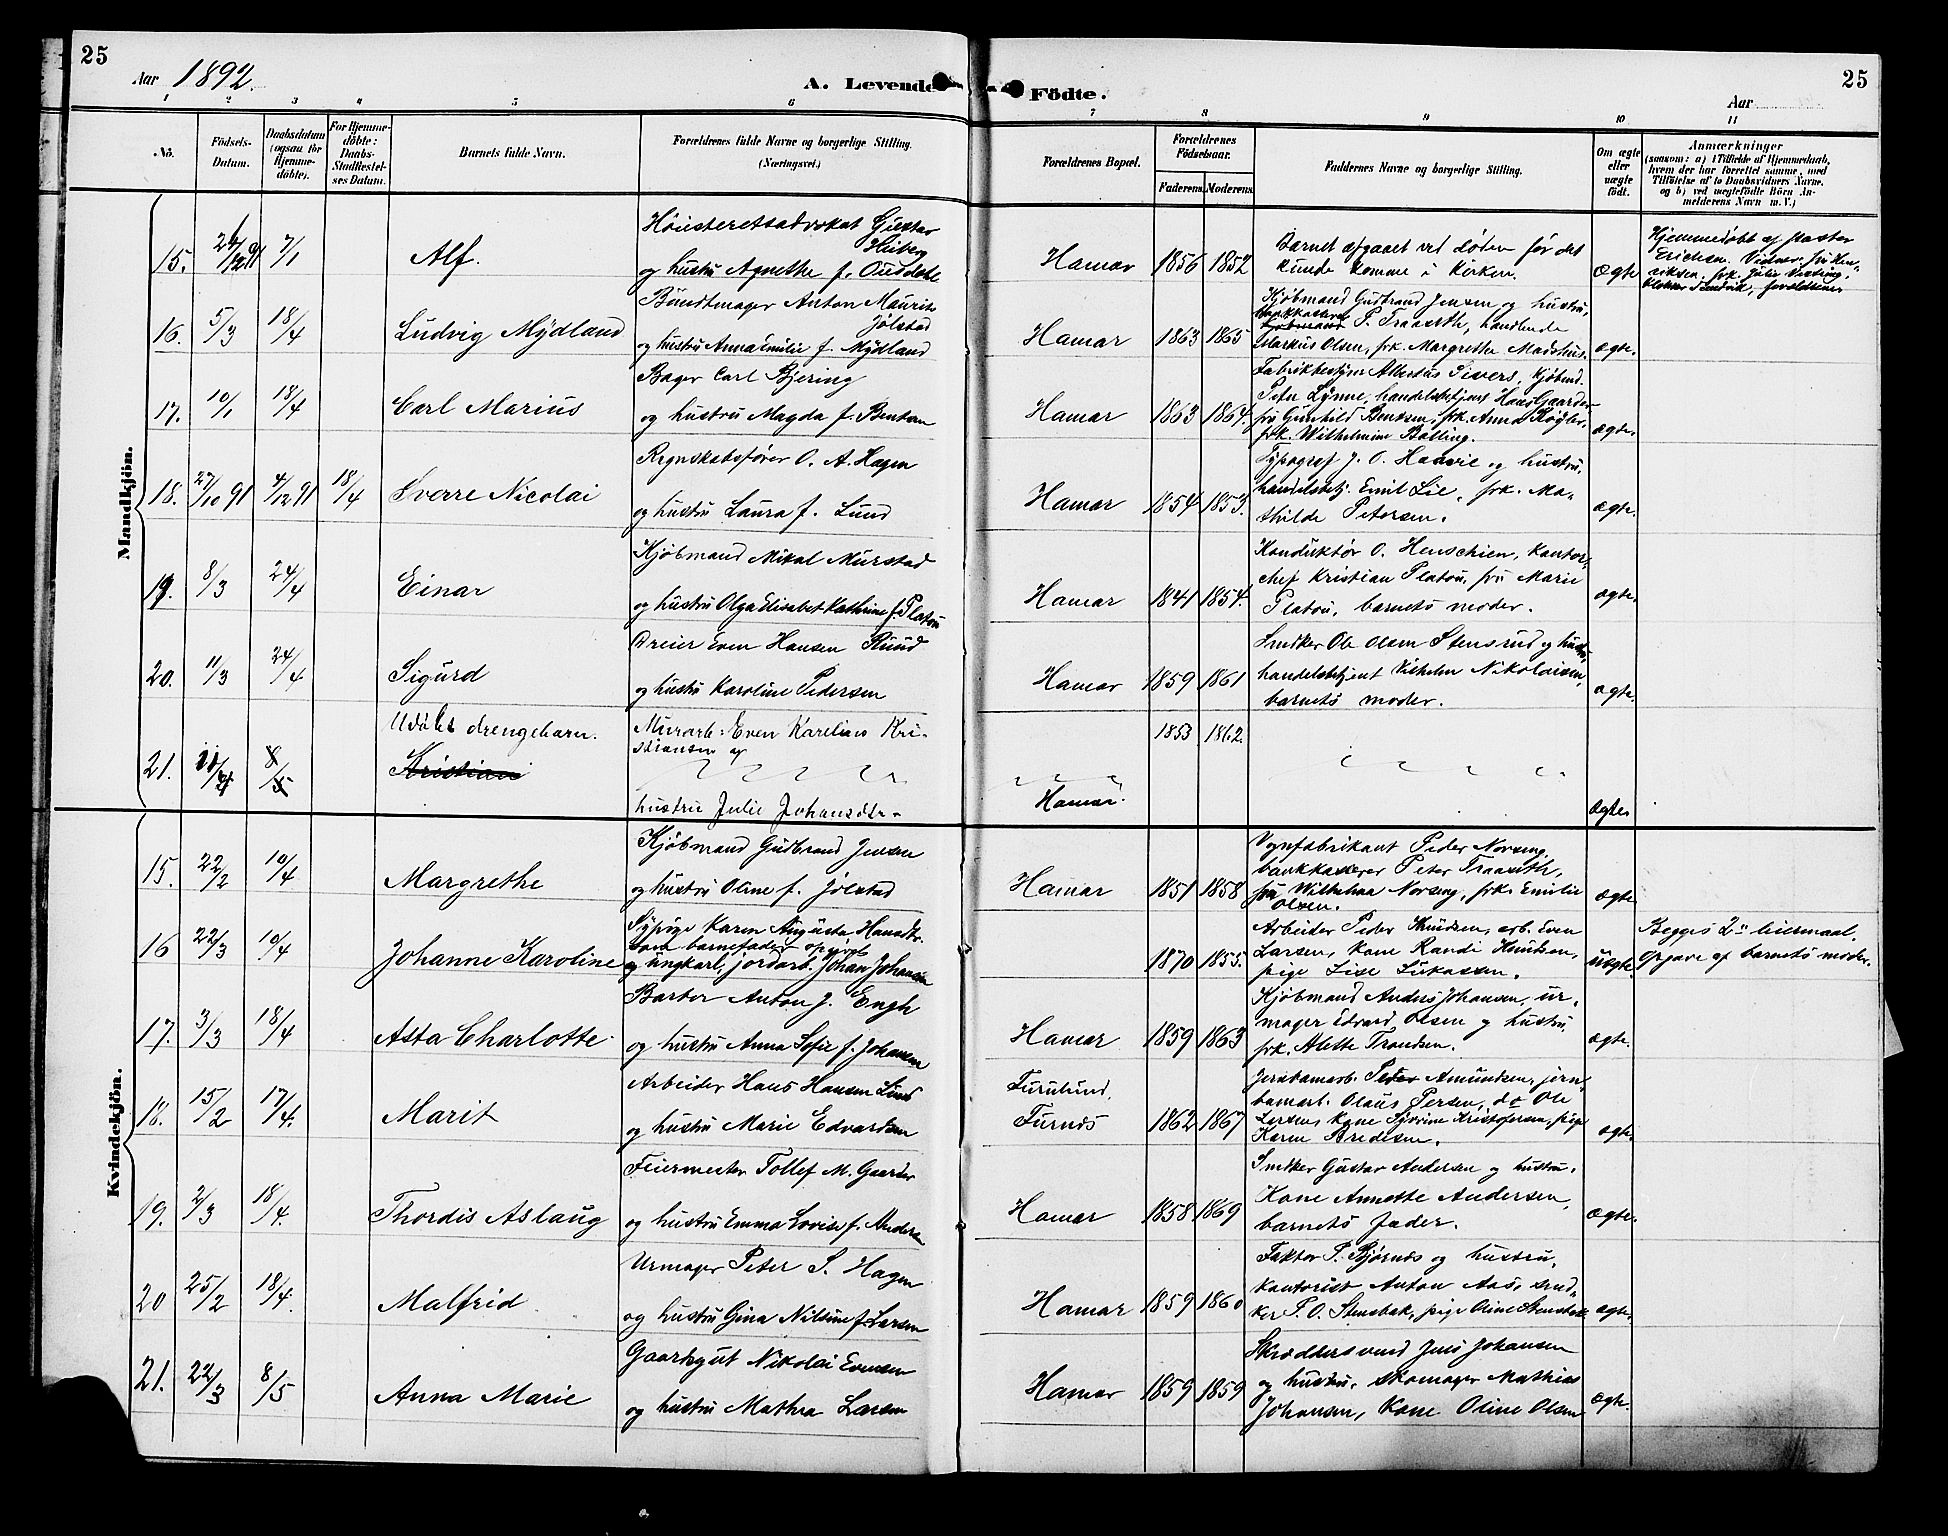 25
Aar 1892.
A. Levende
Födte.
25
Aar
1 2 3 4 5 6
7 8 9 10 11
No.
Födsels-
Datum.
Daabsdatum
(ogsaa for
Hjemme-
döbte).
For Hjemme-
döbte:
Daabs-
Stadfæstel-
ses Datum.
Barnets fulde Navn.
Forældrenes fulde Navne og borgerlige Stilling.
(Næringsvei.)
Forældrenes Bopæl.
Forældrenes
Födselsaar.
Faderens. Moderens.
Faddernes Navne og borgerlige Stilling.
Om ægte
eller
uægte
födt.
Anmærkninger
(saasom: a) i Tilfælde af Hjemmedaab,
hvem der har forrettet samme, med
Tilföielse af to Daabsvidners Navne,
og b) ved uægtefödte Börn An-
melderens Navn m. V.)
Mandkjön.
15. 7/1 Alf.
Höiesteretsadvokat Gustav
Heiberg
og hustru Agnethe f.
Hamar 1856 1852
Barnet afgaaet ved døden før det
kunde komme i Kirken.
ægte
Hjemmedøbt af pastor
Erichsen. Vidner: fru Hen-
riksen, frk. Julie
16. 5/3 18/4 Ludvig Mydland
Bundtmager Anton Maurits
Jølstad
og hustru Anna Emilie f. Mydland
Hamar 1863 1865
Kjøbmand Gudbrand Jensen og hustru,
bankkasserer
P. Traaseth, handlende
Markus Olsen, frk. Margrethe Madshus.
ægte.
17. 10/1 18/4 Carl Marius
Bager Carl Bjering
og hustru Magda f. Bentsen
Hamar 1863 1864.
Fabrikbestyrer Albertus Sivers, Kjøbmd.
Peter Lynne, handelsbetjent Hans Gaarder
fru Gunhild Bentsen, frk. Anna Kogler,
frk. Wilhelmine Bolling.
ægte.
18. 27/10 91 4/12 91 18/4 Sverre Nicolai
Regnskabsfører O. A. Hagen
og hustru Laura f. Lund
Hamar 1854 1853.
Typograf J. O. Haavie og hustru,
handelsbetj. Emil Lie, frk. Ma-
thilde Petersen.
ægte.
19. 8/3 24/4 Einar
Kjøbmand Mikal Murstad
og hustru Olga Elisabet Kathrine f. Platou
Hamar 1841 1854.
Konduktør O. Henschien, kontor-
chef Kristian Platou, fru Marie
Platou, barnets moder.
ægte.
20. 11/3 24/4 Sigurd
Dreier Even Hansen Ruud
og hustru Karoline Pedersen
Hamar 1859 1861
Snedker Ole Olsen Stensrud og hustru,
handelsbetjent Vilhelm Nikolaisen,
barnets moder.
ægte.
21. 8/5
Udøbt drengebarn.
Kristian
Murarb. Even Karelius Kri-
stiansen og
hustru Julie Johansdtr.
Hamar.
1853 1862.
ægte
Kvindekjön.
15. 22/2 10/4 Margrethe
Kjøbmand Gudbrand Jensen
og hustru Oline f. Jølstad
Hamar 1851 1858
Vognfabrikant Peder Norseng,
bankkasserer Peter Traaseth,
fru Wilhelma Norseng, frk. Emilie
Olsen.
ægte
16 22/3 10/4 Johanne Karoline
Sypige Karen Augusta Hansdtr.
som barnefader opgivet
og ungkarl, jordarb. Johan Johansen
1870 1855.
Arbeider Peder Knudsen, arb. Even
Larsen, kone Randi Knudsen,
pige Lise Lukassen.
uægte.
Begges 2det leiermaal.
Opgave af barnets moder.
17. 3/3 18/4 Asta Charlotte
Barber Anton J. Engh
og hustru Anna Sofie f. Johansen
Hamar 1859 1863
Kjøbmand Anders Johansen, ur-
mager Edvard Olsen og hustru
frk. Alette Trondsen.
ægte.
18. 15/2 17/4. Marit
Arbeider Hans Hansen Lund
og hustru Marie Edvardsen
Furulund,
Furnæs
1862 1867
Jernbanearb. Peder Amundsen, jern-
banearb. Olaus Persen, do Ole
Larsen, kone Syverine Kristofersen, pige
Karen Bredesen.
ægte.
19. 2/3 18/4. Thordis Aslaug
Feiermester Tollef M. Gaarder
og hustru Emma Lovise f. Andersen
Hamar 1858 1869
Snedker Gustav Andersen og hustru,
Kone Annette Andersen,
barnets fader.
ægte.
20 25/2 18/4. Malfrid
Urmager Peter S. Hagen
og hustru Gina Nilsine f. Larsen
Hamar 1859 1860
Faktor P. Bjørnds og hustru,
Kontorist Anton Aas, sned-
ker P. O. Stensbak, pige Oline Stensbak
ægte.
21. 22/3 8/5 Anna Marie
Gaardsgut Nikolai Evensen
og hustru Mathea Larsen
Hamar 1859 1859
Skræddersvend Jens Johansen
og hustru, skomager Mathias
Johansen, kone Oline Olsen
ægte.